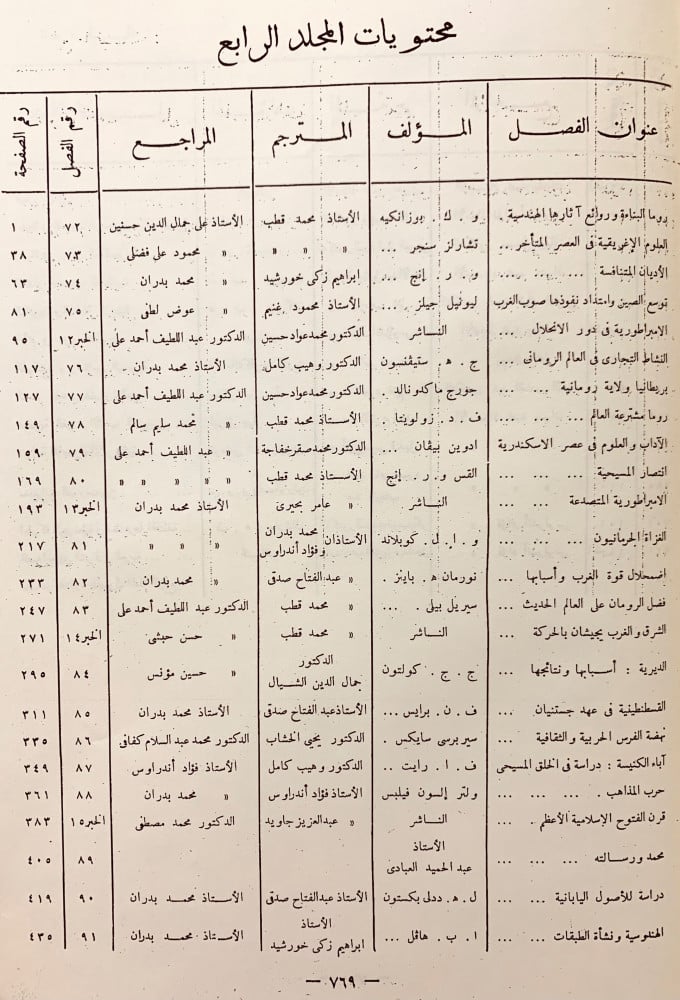 محتويات المجلد الرابع
عنوان الفصل | المؤلف | المترجم | المراجع | رقم الفصل | رقم الصفحة
روما البناءة وروائع آثارها الهندسية . | و . ك . بوزانكيه | الأستاذ محمد قطب | الأستاذ على جمال الدين حسنين | ٧٢ | ١
العلوم الإغريقية فى العصر المتأخر... | تشارلز سنجر ... | » » » | » محمود على فضلى | ٧٣ | ٣٨
الأديان المتنافسة ... ... ... | و . ر . إنج ... | إبراهيم زكى خورشيد | » محمد بدران | ٧٤ | ٦٣
توسع الصين وامتداد نفوذها صوب الغرب | ليونيل جيلز ... | الأستاذ محمود غنيم | » عوض لطفى | ٧٥ | ٨١
الامبراطورية فى دور الانحلال ... | الناشر | الدكتور محمد عواد حسين | الدكتور عبد اللطيف أحمد على | الخبر١٢ | ٩٥
النشاط التجارى فى العالم الرومانى ... | ج . ه . ستيڤنسون | الدكتور وهيب كامل | الأستاذ محمد بدران | ٧٦ | ١١٧
بريطانيا ولاية رومانية ... ... | جورج ماكدونالد . | الدكتور محمد عواد حسين | الدكتور عبد اللطيف أحمد على | ٧٧ | ١٢٧
روما مشترعة العالم ... ... ... | ف . د . زولويتا . | الأستاذ محمد قطب | » محمد سليم سالم | ٧٨ | ١٤٩
الآداب والعلوم فى عصر الاسكندرية | ادوين بيڤان ... | الدكتور محمد صقر خفاجة | » عبد اللطيف أحمد على | ٧٩ | ١٥٩
انتصار المسيحية ... ... ... | القس و . ر . إنج | الأستاذ محمد قطب | » » » » » | ٨٠ | ١٦٩
الامبراطورية المتصدعة ... ... | الناشر | » عامر بحيرى | الأستاذ محمد بدران | الخبر١٣ | ١٩٣
الغزاة الجرمانيون ... ... ... | و . ا . ل . كوبلاند | الأستاذان محمد بدران وفؤاد أندراوس | » » » | ٨١ | ٢١٧
اضمحلال قوة الغرب وأسبابها ... | نورمان ه . باينز . | » عبد الفتاح صدقى | » محمد بدران | ٨٢ | ٢٣٣
فضل الرومان على العالم الحديث ... | سيريل بيلى . ... | » محمد قطب | الدكتور عبد اللطيف أحمد على | ٨٣ | ٢٤٧
الشرق والغرب يجيشان بالحركة ... | الناشر | » محمد قطب | » حسن حبشى | الخبر١٤ | ٢٧١
الديرية : أسبابها ونتائجها ... | ج . ج . كولتون | الدكتور جمال الدين الشيال | » حسين مؤنس | ٨٤ | ٢٩٥
القسطنطينية فى عهد جستنيان ... | ف . ن . برايس ... | الأستاذ عبد الفتاح صدقى | الأستاذ محمد بدران | ٨٥ | ٣١١
نهضة الفرس الحربية والثقافية ... | سير برسى سايكس . | الدكتور يحيى الخشاب | الدكتور محمد عبد السلام كفافى | ٨٦ | ٣٣٥
آباء الكنيسة : دراسة فى الخلق المسيحى | ف . ا . رايت .. | الدكتور وهيب كامل | الأستاذ فؤاد أندراوس | ٨٧ | ٣٤٩
حرب المذاهب . ... ... ... | ولتر إلسون فيلبس | الأستاذ فؤاد أندراوس | » محمد بدران | ٨٨ | ٣٦١
قرن الفتوح الإسلامية الأعظم . ... | الناشر | » عبد العزيز جاويد | الدكتور محمد مصطفى | الخبر١٥ | ٣٨٣
محمد ورسالته ... ... ... | الأستاذ عبد الحميد العبادى | ٨٩ | ٤٠٥
دراسة للأصول اليابانية ... ... | ل . ه . ددلى بكستون | الأستاذ عبد الفتاح صدقى | الأستاذ محمد بدران | ٩٠ | ٤١٩
الهندوسية ونشأة الطبقات ... ... | ا . ب . هاڤل ... | الأستاذ ابراهيم زكى خورشيد | الأستاذ محمد بدران | ٩١ | ٤٣٥
— ٧٦٩ —